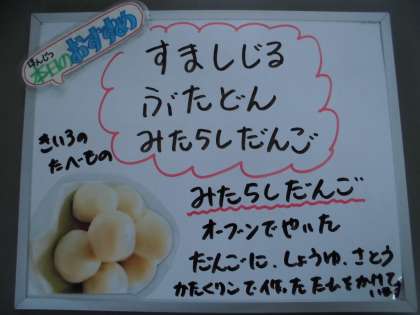 ほんじつ
本日のおすすめ
すましじる
ぶたどん
みたらしだんご
きいろの
たべもの
みたらしだんご
オーブンでやいた
だんごに、しょうゆ、さとう
かたくりこで作ったたれをかけて
います